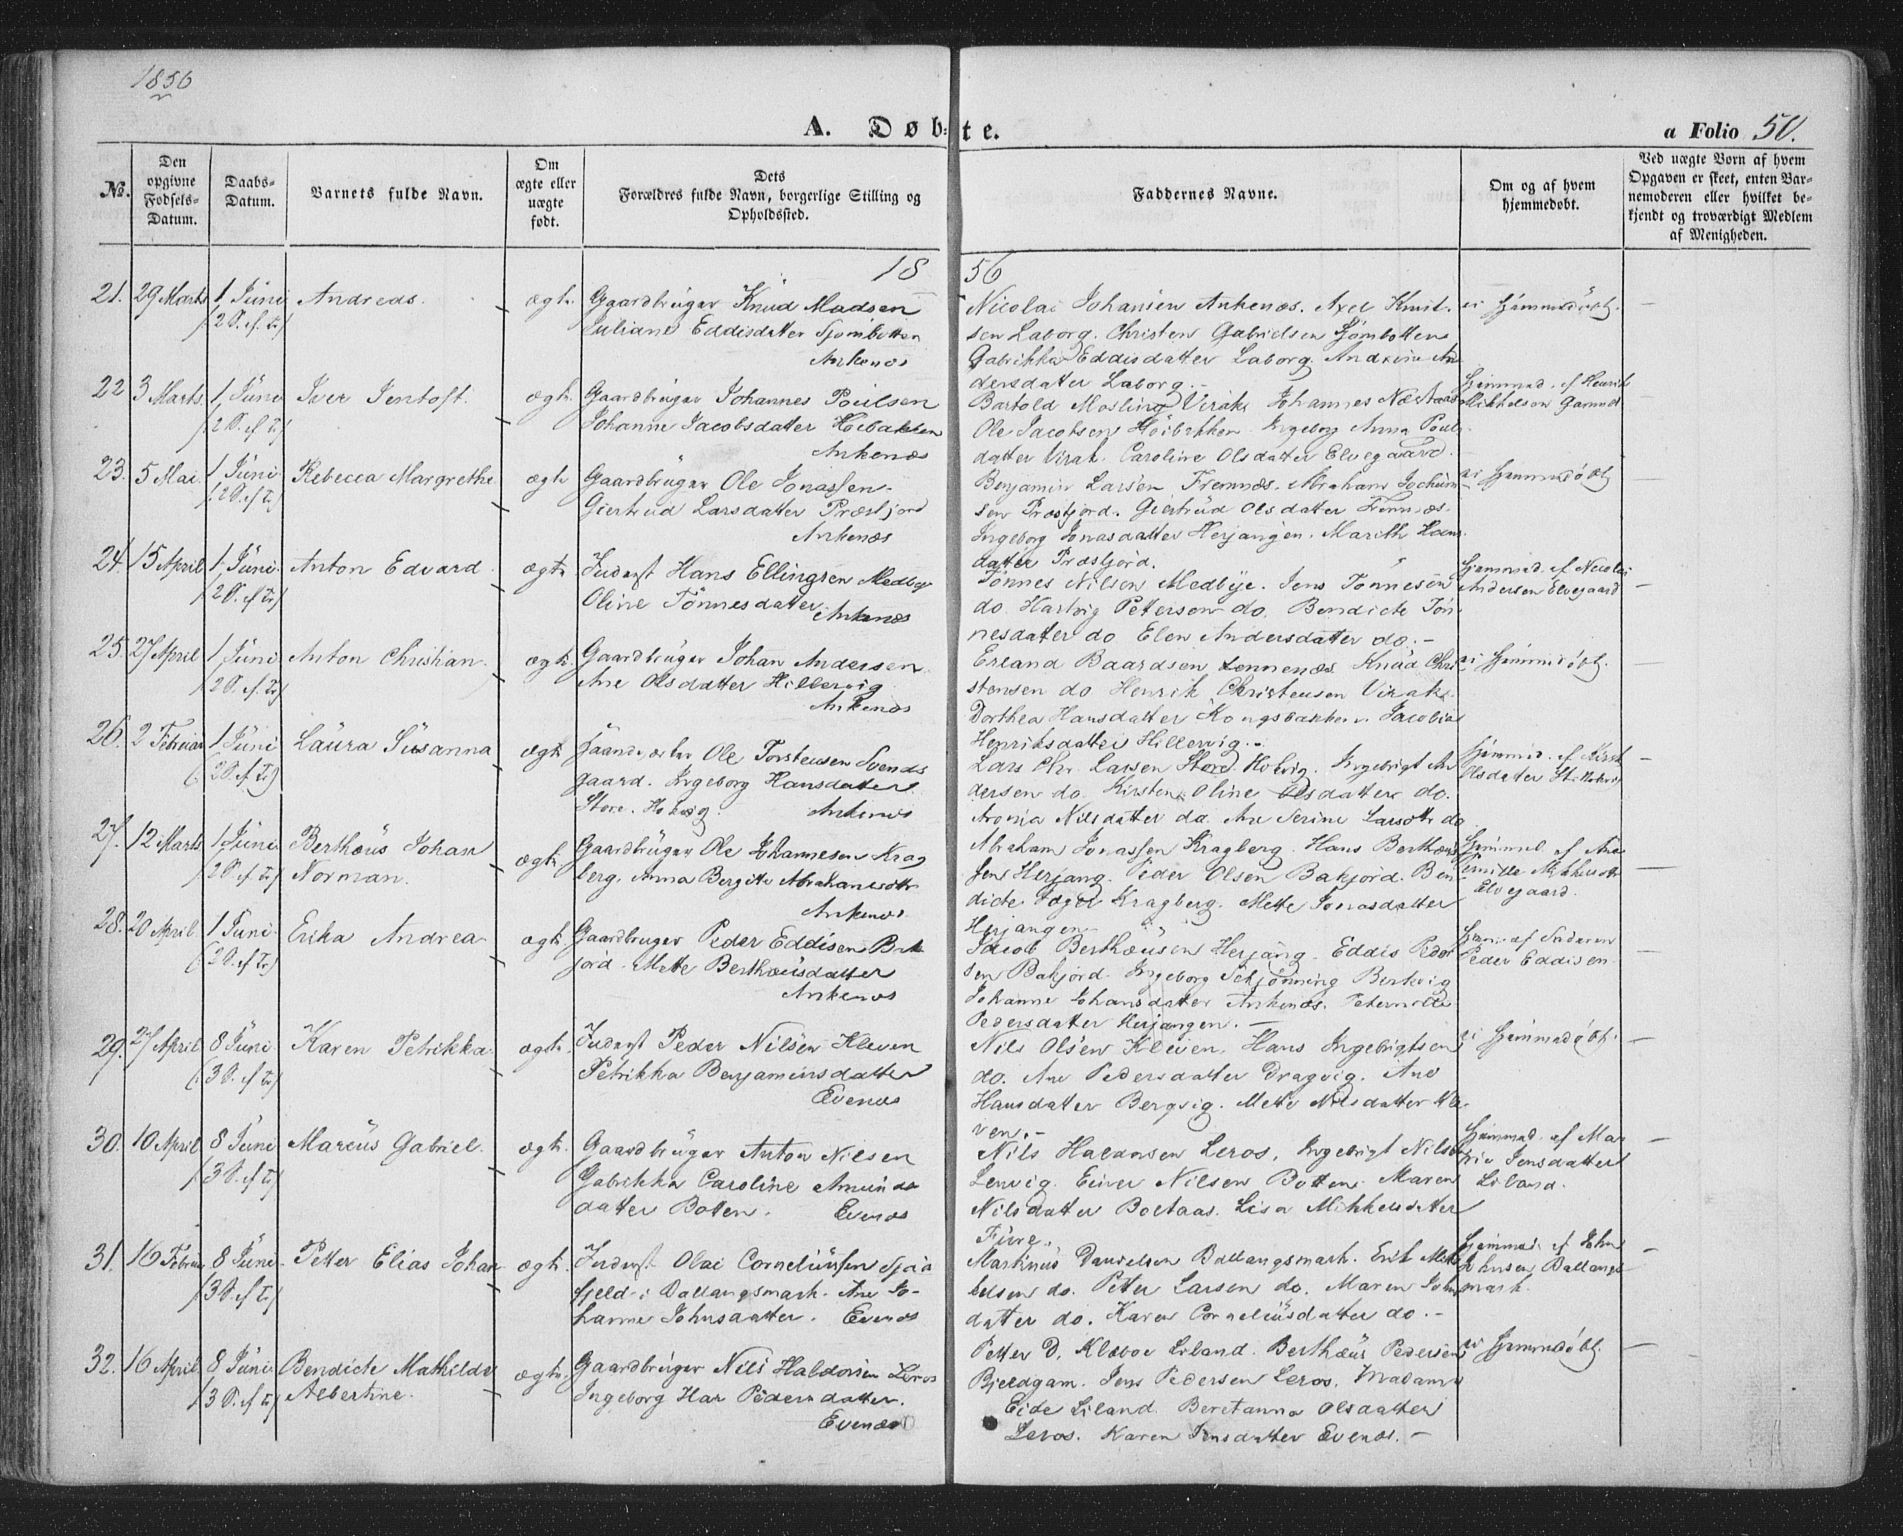 1856
A. Døb-te.
a Folio 50.
No.
Den opgivne Fødsels-Datum.
Daabs-Datum.
Barnets fulde Navn.
Om ægte eller uægte født.
Dets Forældres fulde Navn, borgerlige Stilling og Opholdssted.
Faddernes Navne.
Om og af hvem hjemmedøbt.
Ved uægte Børn af hvem Opgaven er skeet, enten Barnemoderen eller hvilket bekjendt og troværdigt Medlem af Menigheden.
18 56
21. 29 Marts 1 Juni Andreas. ægte Gaardbruger Knud Madsen
(2 S. ef. Tr) Juliane Eddisdatter Sjombotten
Ankenæs
Nicolai Johansen Ankenæs. Axel Knut-
sen Laborg. Christen Gabrielsen Sjombotten
Gabrikka Eddisdatter Laborg. Andrine An
dersdatter Laborg.
ei hjemmedøbt.
22 3 Marts. 1 Juni Iver Jentoft. ægte Gaardbruger Johannes Poulsen
(2 S. ef Tr) Johanne Jacobsdatter Høibakken
Ankenæs
Bartold Mosling Virak. Johannes
Ole Jacobsen Høibakken. Ingeborg Anna Pouls
datter Virak. Caroline Olsdatter Elvegaard.
hjemmed. af Henrik
Mikkelsen
23. 5 Mai. 1 Juni Rebecca Margrethe ægte Gaardbruger Ole Jonassen
(2 S. ef Tr) Giertrud Larsdatter Præstjord
Ankenæs
Benjamin Larsen Fremnæs. Abraham Jochum
sen Præstjord. Giertrud Olsdatter
Ingeborg Jonasdatter Herjangen. Marith Hans
datter Præstjord.
ei hjemmedøbt
24. 15 April 1 Juni Anton Edvard. ægte Inderst Hans Ellingsen Medby
(2 S. ef Tr) Oline Tønnesdatter
Ankenæs
Tønnes Nilsen Medbye. Jens Tønnesen
do. Hartvig Petersen do. Bendicte Tøn
nesdatter do Elen Andersdatter do.-
hjemmed. af Nicolai
Andersen Elvegaard
25. 27 April 1 Juni Anton Christian. ægte Gaardbruger Johan Andersen
(2 S. ef. Tr) Ane Olsdatter Hillervig
Ankenæs
Erland Baardsen Lennenæs. Knud Chri
stensen do Henrik Christensen Virak.
Dorthea Hansdatter Kongsbakken. Jacobia
Henriksdatter Hillervig.-
ei hjemmedøbt.
26. 2 Februar 1 Juni Laura Susanna ægte Ole Torstensen Svends
(2 S. ef Tr) gaard. Ingeborg Hansdatter
Store. Ankenæs
Lars Chr. Larsen Ingebrigt An
dersen do. Kirsten Oline Olsdatter do.
Aronia Nilsdatter do. Ane Serine Larsdtr do
hjemmed. af Kirst
Olsdatter
27. 12 Marts 1 Juni Berthæus Johan ægte Gaardbruger Ole Johannesen Krag
(2 S. ef Tr) Norman. berg. Anna Bergitte Abrahamsdtr
Ankenæs
Abraham Jonassen Kragberg. Hans Berthæus
sen Herjang. Peder Olsen Bakjord. Ben
dicte Kragberg. Mette Jonasdatter
Herjangen
hjemmed. af Ane
Pernille Mikkelsdtr
Elvegaard.
28. 20 April 1 Juni Erika Andrea ægte Gaardbruger Peder Eddisen Bak
(2 S. ef Tr) jord. Mette Berthæusdatter
Ankenæs
Jacob Berthæusen Herjang. Eddis Peder
sen Bakjord. Ingeborg Schjønning Berkvig
Johanne Johansdatter Ankenæs. Peternille
Pedersdatter Herjangen.-
hjem. af Faderen
Peder Eddisen
29. 27 April 8 Juni Karen Petrikka ægte Inderst Peder Nilsen Kleven
(3 S. ef Tr) Petrikka Benjaminsdatter
Evenæs
Nils Olsen Kleven. Hans Ingebrigtsen
do. Ane Pedersdatter Dragvig. Ane
Hansdatter Bergvig. Mette Nilsdatter Kle
ven.-
ei hjemmedøbt.
30. 10 April 8 Juni Marcus Gabriel. ægte Gaardbruger Anton Nilsen
(3 S. ef Tr) Gabrikka Caroline Amunds
datter Botten. Evenæs
Nils Haldorsen Leros. Ingebrigt Nilsen
Lenvig. Einer Nilsen Botten. Maren
Nilsdatter Boltaas. Lisa Mikkelsdatter
hjemmed. af Ma
rie Jensdatter
Liland.
31. 16 Februar 8 Juni Petter Elias Johan ægte Inderst Olai Corneliussen
(3 S. ef Tr) fjeld i Ballangsmark. Ane Jo-
hanne Johnsdatter. Evenæs
Martinus Danielsen Ballangsmark. Erik Mik
kelsen do. Peter Larsen do. Maren John
datter do. Karen Corneliusdatter do.-
hjemmed. af John
Ballangs
mark.
32. 16 April 8 Juni Bendicte Mathilde ægte Gaardbruger Nils Haldorsen Leros
(3 S. ef Tr) Albertine. Ingeborg Pedersdatter.
Evenæs
Petter D. Klæboe Liland. Berthæus Pedersen
Bjeldgam. Jens Pedersen Leros. Madam
Eide Liland. Beretanna Olsdatter
Leros. Karen Jensdatter Evenæs.-
ei hjemmedøbt.